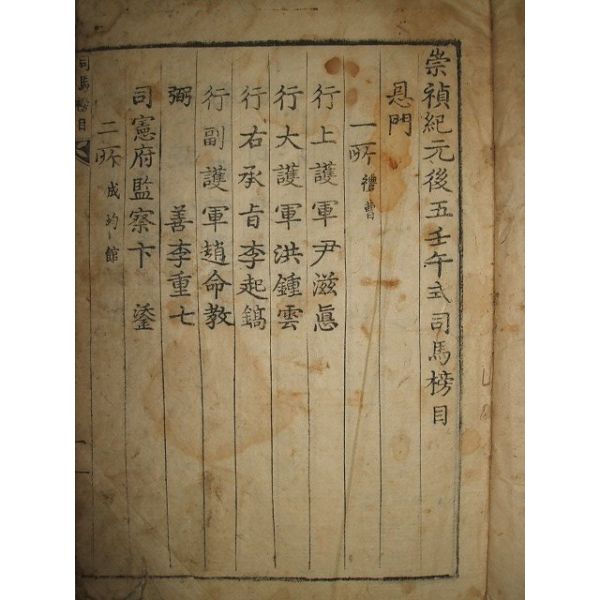 崇禎紀元後五壬午式司馬榜目
恩門
一所 禮曹
行上護軍尹滋悳
行大護軍洪鍾雲
行右承旨李起鎬
行副護軍趙命教
弼善李重七
司憲府監察卞鋈
二所 成均館
司馬榜目